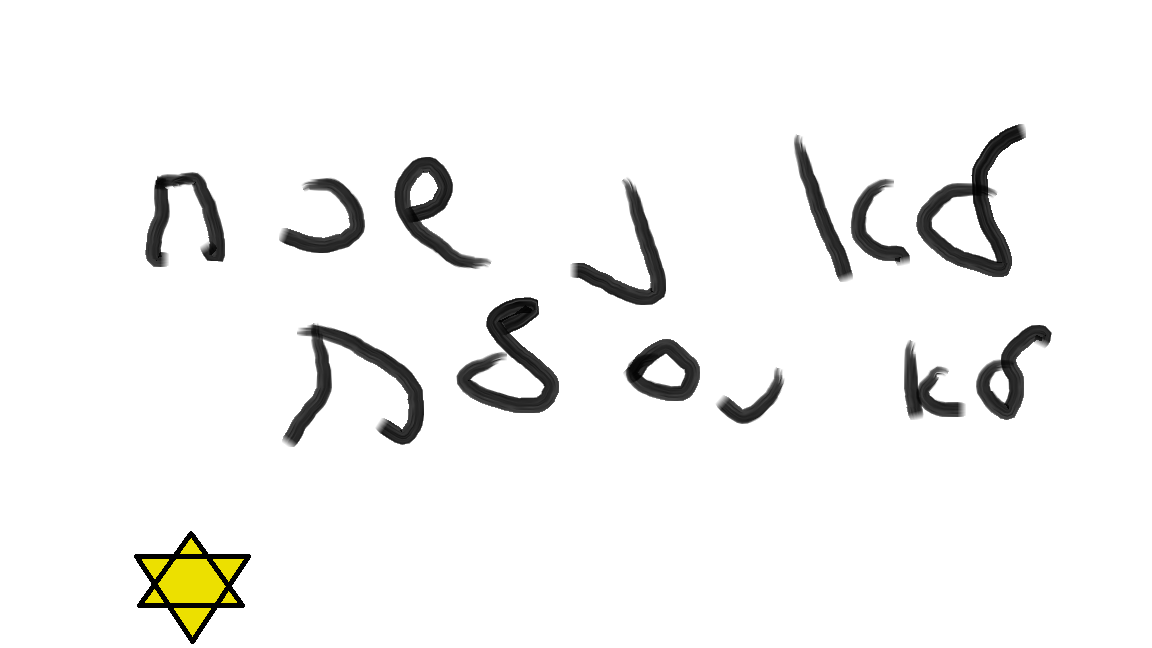 לא נשכח
לא נסלח